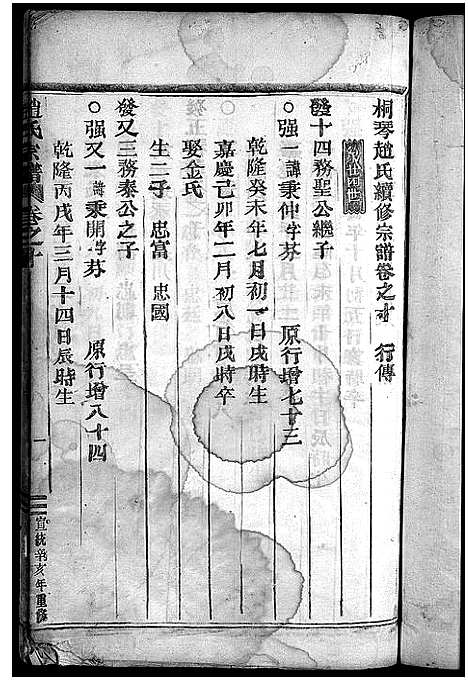 桐琴趙氏續修宗譜卷之 行傳
發十四務聖公繼子
○强一諱秉仲字芬 原行增七十三
乾隆癸未年七月初一日戌時生
嘉慶己卯年二月初八日戌時卒
娶金氏
生二子 忠富 忠國
發又三務泰公之子
○强又一諱秉開字芬 原行增八十四
乾隆丙戌年三月十四日辰時生
趙氏宗譜 卷之 一 宣統辛亥年重修